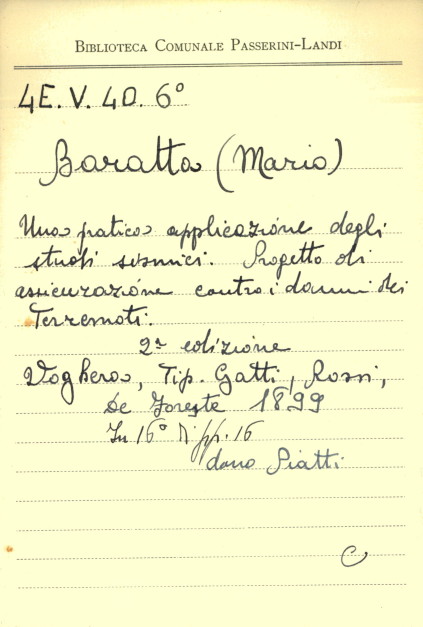 BIBLIOTECA COMUNALE PASSERINI-LANDI
4E. V. 4D. 6°
Baratta (Mario)
Una pratica applicazione degli
studi sismici. Progetto di
assicurazione contro i danni dei
Terremoti.
2ª edizione
Voghera, Tip. Gatti, Rossi,
De Foreste 1899
In 16° pp. 16
dono Piatti
C